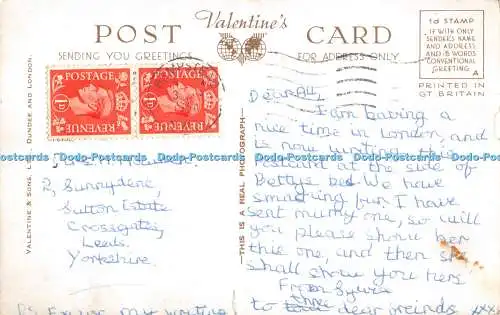 POST Valentine's CARD
SENDING YOU GREETINGS
FOR ADDRESS ONLY
1d STAMP
IF WITH ONLY
SENDER'S NAME
AND ADDRESS
AND 5 WORDS
CONVENTIONAL
GREETING
A
PRINTED IN
GT BRITAIN
POSTAGE
1D
REVENUE
POSTAGE
1D
REVENUE
VALENTINE & SONS, DUNDEE AND LONDON.
THIS IS A REAL PHOTOGRAPH
2, Sunnydene,
Sutton Estate
Crossgates,
Leeds.
Yorkshire
PS Excuse my writing
Dear All,
I am having a
nice time in London, and
is now writing this
card at the side of
Bettys bed. We have
smashing fun. I have
sent mumy one, so will
you please show her
this one, and then she
shall show you hers
From Sylvia
to three dear freinds xxx
Dodo-Postcards Dodo-Postcards Dodo-Postcards Dodo-Postcards Dodo-Postcards